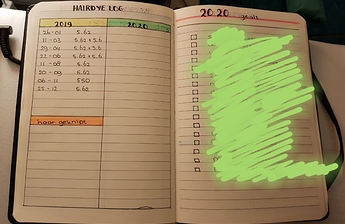 HAIRDYE LOG
2019 2020
26-01 5.62
11-03 5.62 + 5.6
29-04 5.62 + 5.6
22-06 5.62 + 5.6
11-08 5.62
20-09 5.62
06-11 5.50
25-12 5.62
haar geknipt
2020 goals